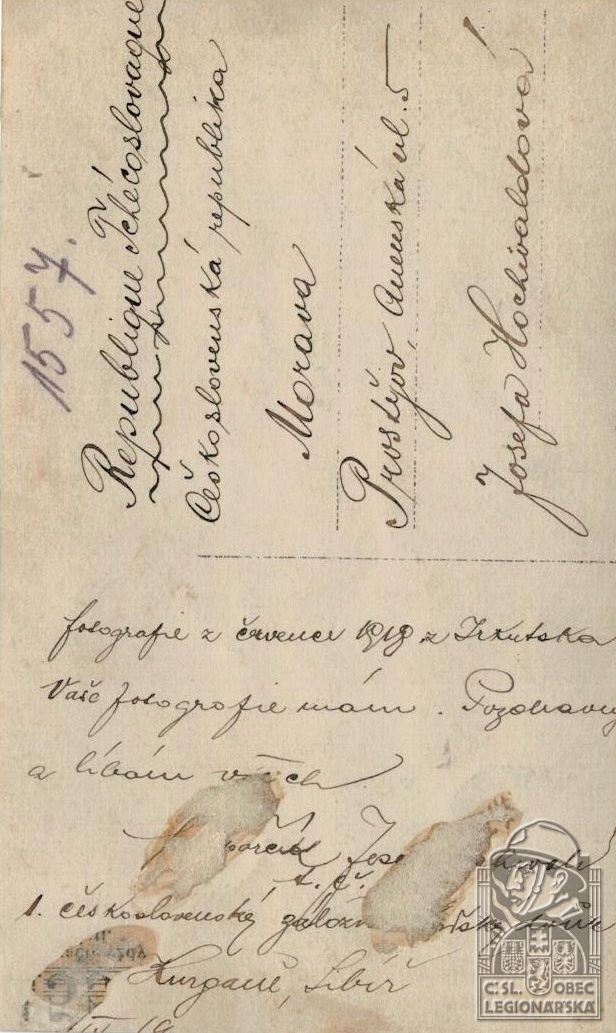 1557.
Republique Tchécoslovaque
Československá republika
Morava
Prostějov, Anenská ul. 5
Josefa Hochwaldová
fotografie z července 1919 z Irkutska
Vaše fotografie mám. Pozdravuj
a líbám všech
1. československý
Kurganě, Sibiř
Č.SL. OBEC
LEGIONÁŘSKÁ